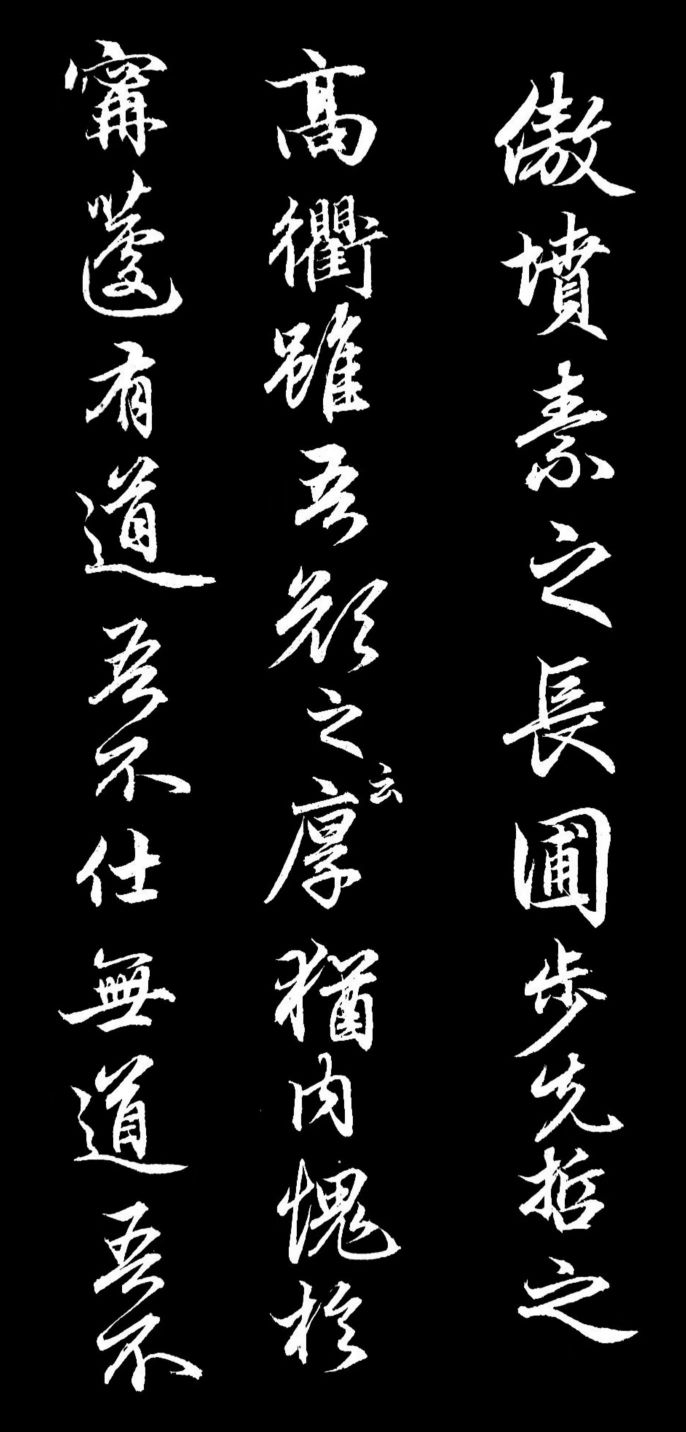 傲墳素之長圃步先哲之
高衢雖吾顏之云厚猶内愧於
甯蘧有道吾不仕無道吾不